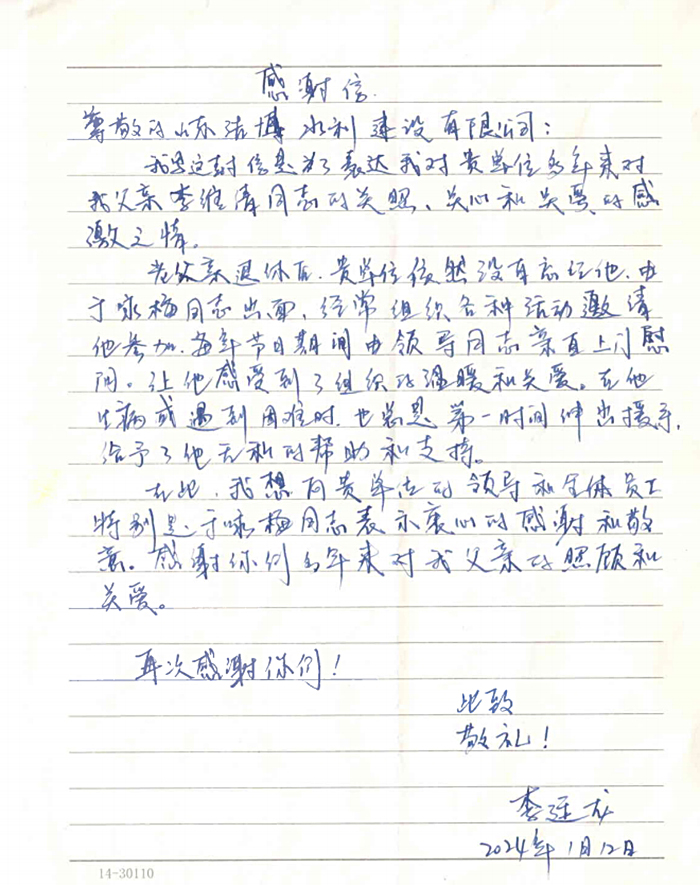 感谢信
尊敬的山东洁博水利建设有限公司：
我写这封信是为了表达我对贵单位多年来对
我父亲李维清同志的关照、关心和关爱的感
激之情。
老父亲退休后，贵单位依然没有忘记他，由
于咏梅同志出面，经常组织各种活动邀请
他参加，每年节日期间由领导同志亲自上门慰
问。让他感受到了组织的温暖和关爱。在他
生病或遇到困难时，也总是第一时间伸出援手，
给予了他无私的帮助和支持。
在此，我想向贵单位的领导和全体员工
特别是于咏梅同志表示衷心的感谢和敬
意。感谢你们多年来对我父亲的照顾和
关爱。
再次感谢你们！
此致
敬礼！
李延龙
2024年1月12日
14-30110